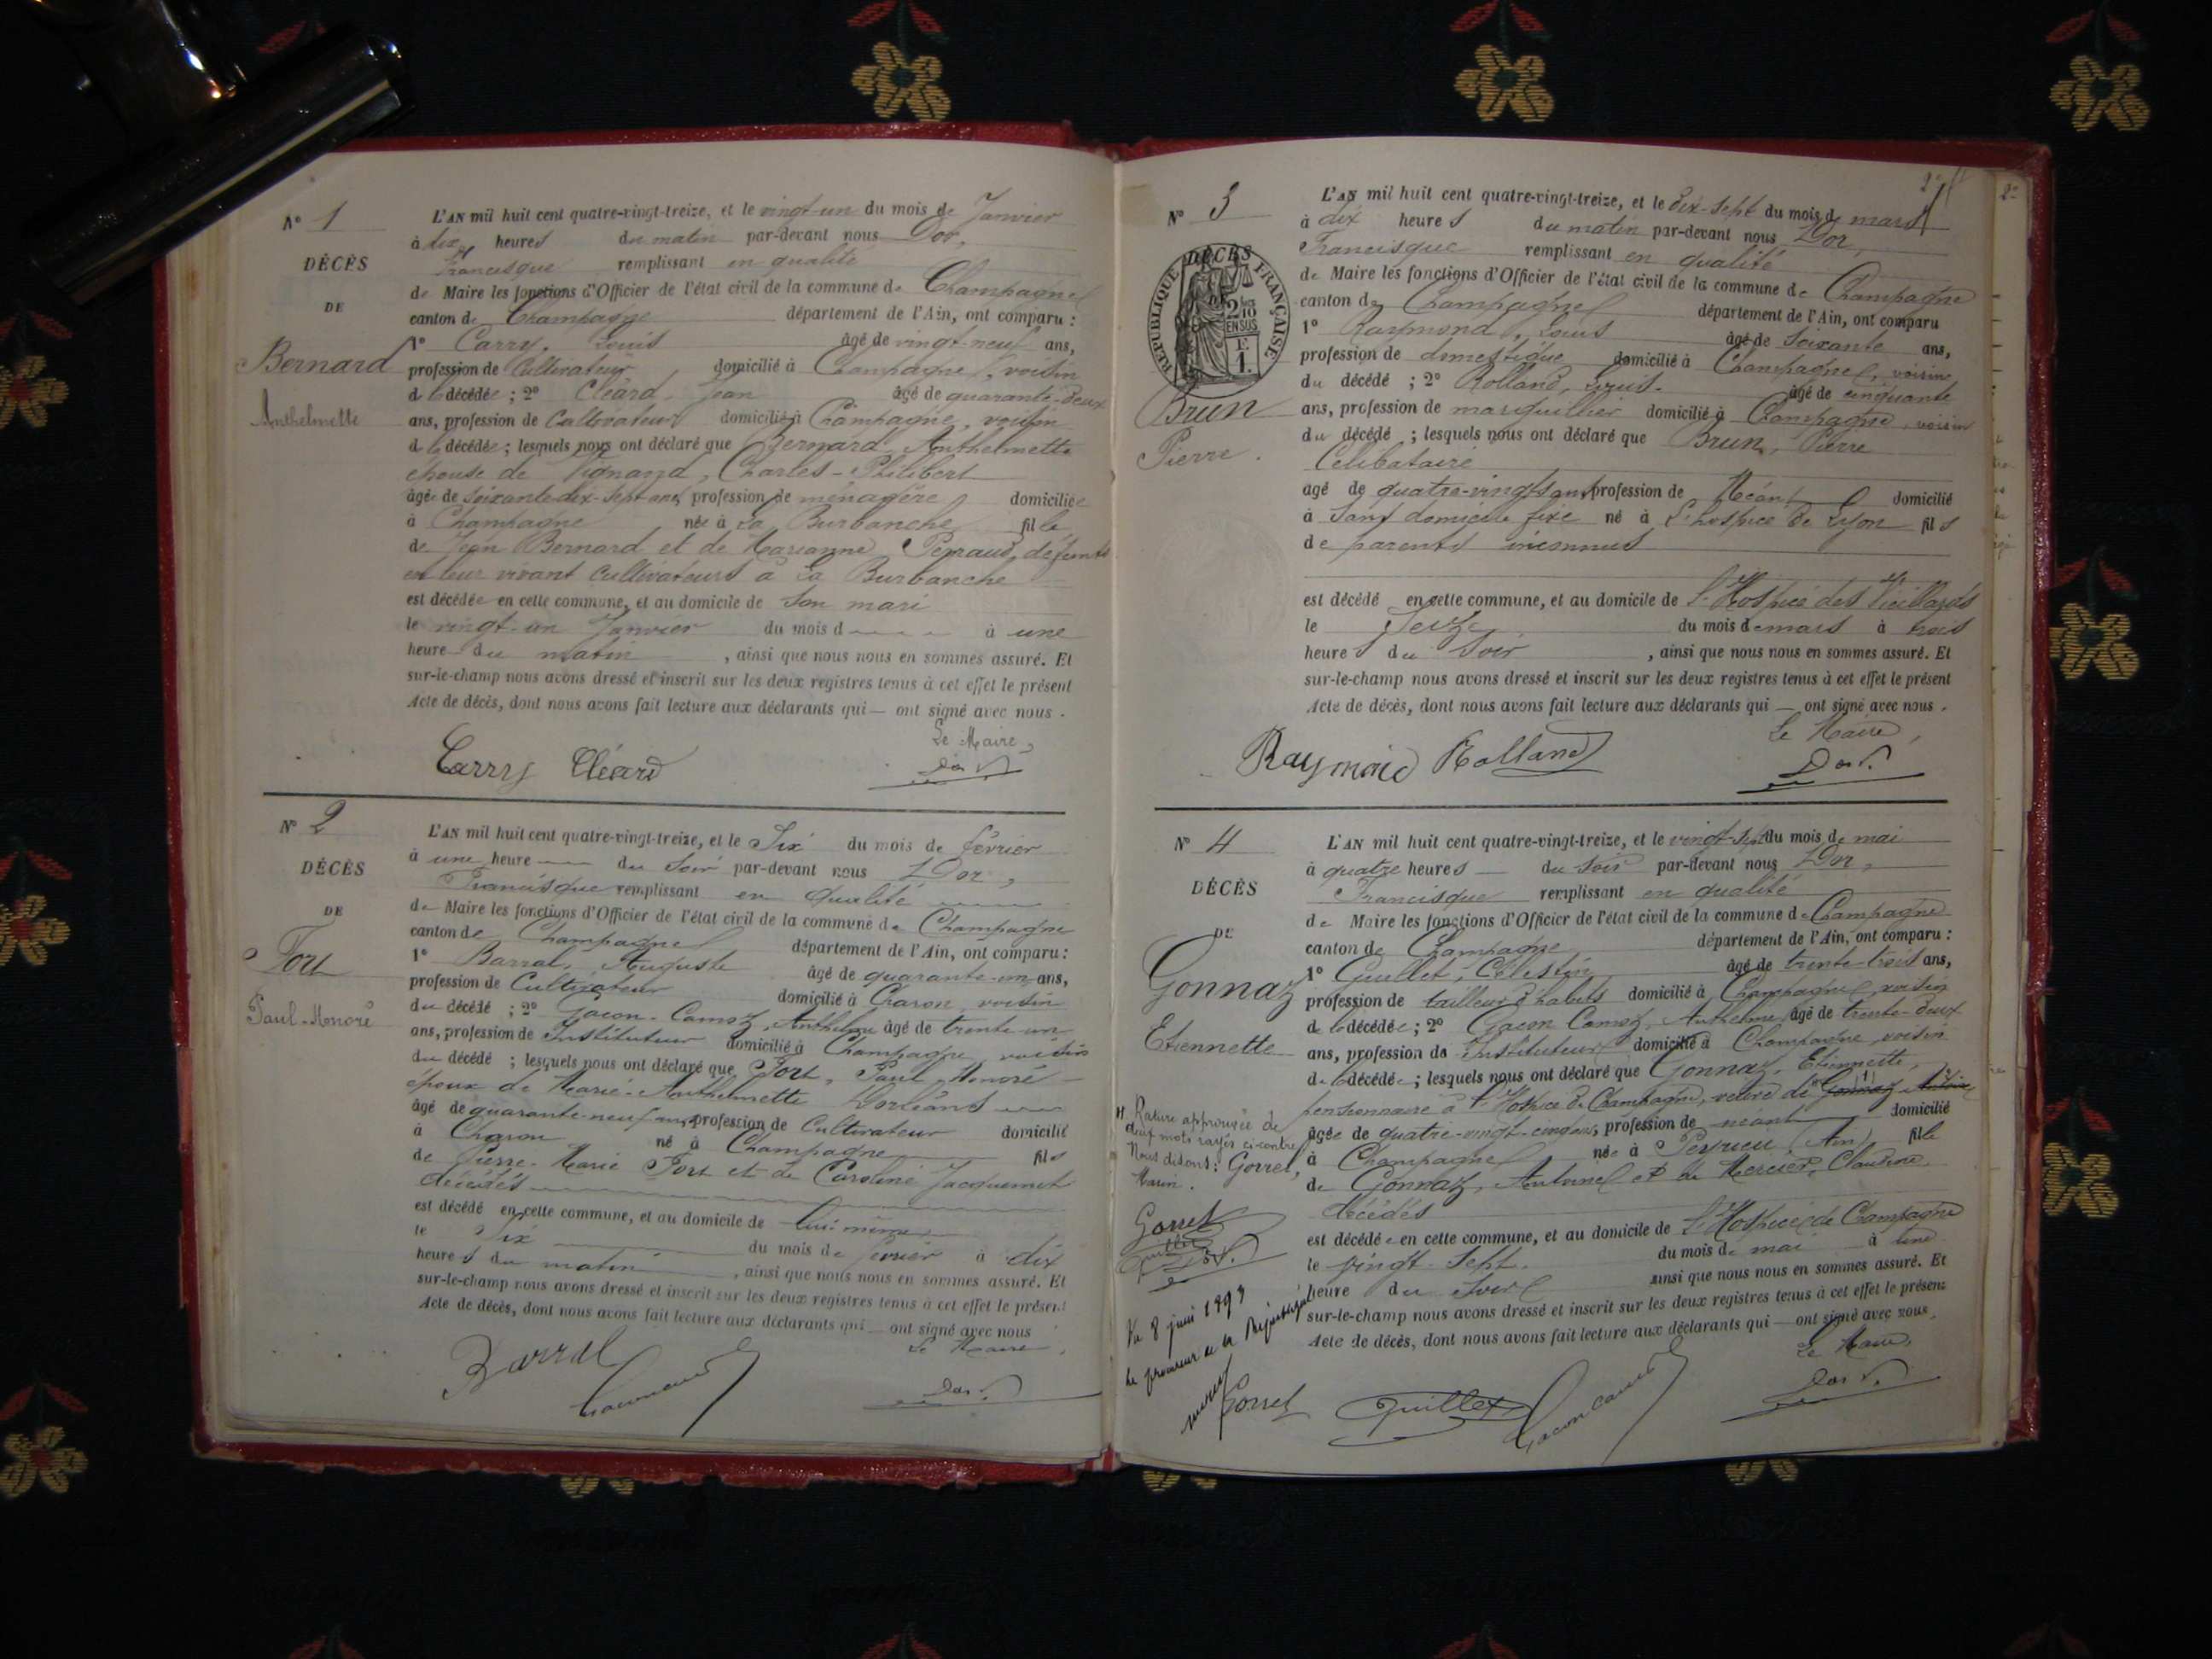 N° 1
DÉCÈS
DE
Bernard
Anthelmette
L'AN mil huit cent quatre-vingt-treize, et le vingt-un du mois de Janvier
à dix heures du matin par-devant nous Dor,
Francisque remplissant en qualité
de Maire les fonctions d'Officier de l'état civil de la commune de Champagne
canton de Champagne département de l'Ain, ont comparu :
1° Carry, Louis âgé de vingt-neuf ans,
profession de Cultivateur domicilié à Champagne, voisin
de la décédée ; 2° Cléard, Jean âgé de quarante-deux
ans, profession de Cultivateur domicilié à Champagne, voisin
de la décédée ; lesquels nous ont déclaré que Bernard Anthelmette
épouse de Vignand, Charles-Philibert
âgée de soixante-dix-sept ans, profession de ménagère domiciliée
à Champagne née à La Burbanche fille
de Jean Bernard et de Marianne Peyraud, défunts
en leur vivant cultivateurs à La Burbanche
est décédée en cette commune, et au domicile de son mari
le vingt-un Janvier du mois d à une
heure du matin, ainsi que nous nous en sommes assuré. Et
sur-le-champ nous avons dressé et inscrit sur les deux registres tenus à cet effet le présent
Acte de décès, dont nous avons fait lecture aux déclarants qui — ont signé avec nous.
Le Maire,
Carry Cléard Dor
N° 2
DÉCÈS
DE
Fort
Paul-Honoré
L'AN mil huit cent quatre-vingt-treize, et le Six du mois de février
à une heure du soir par-devant nous Dor,
Francisque remplissant en qualité
de Maire les fonctions d'Officier de l'état civil de la commune de Champagne
canton de Champagne département de l'Ain, ont comparu :
1° Barral, Auguste âgé de quarante-un ans,
profession de Cultivateur domicilié à Charon voisin
du décédé ; 2° Gacon-Camoz, Anthelme âgé de trente-un
ans, profession de Instituteur domicilié à Champagne voisin
du décédé ; lesquels nous ont déclaré que Fort, Paul Honoré
époux de Marie-Anthelmette Dorléans
âgé de quarante-neuf ans profession de Cultivateur domicilié
à Charon né à Champagne fils
de Pierre-Marie Fort et de Caroline Jacquemet
décédés
est décédé en cette commune, et au domicile de lui-même
le Six du mois de février à dix
heures du matin, ainsi que nous nous en sommes assuré. Et
sur-le-champ nous avons dressé et inscrit sur les deux registres tenus à cet effet le présent
Acte de décès, dont nous avons fait lecture aux déclarants qui — ont signé avec nous
Le Maire,
Barral Dor
2
N° 3
RÉPUBLIQUE FRANÇAISE
DÉCÈS
DE
2/10 EN SUS
F
1.
Brun
Pierre.
L'AN mil huit cent quatre-vingt-treize, et le dix-sept du mois de mars
à dix heures du matin par-devant nous Dor,
Francisque remplissant en qualité
de Maire les fonctions d'Officier de l'état civil de la commune de Champagne
canton de Champagne département de l'Ain, ont comparu
1° Raymond, Louis âgé de soixante ans,
profession de domestique domicilié à Champagne, voisin
du décédé ; 2° Rolland, âgé de cinquante
ans, profession de marguillier domicilié à Champagne, voisin
du décédé ; lesquels nous ont déclaré que Brun, Pierre
Célibataire
âgé de quatre-vingts ans profession de Néant domicilié
à sans domicile fixe né à l'hospice de Lyon fils
de parents inconnus
est décédé en cette commune, et au domicile de l'Hospice des Vieillards
le Seize du mois de mars à trois
heures du soir, ainsi que nous nous en sommes assuré. Et
sur-le-champ nous avons dressé et inscrit sur les deux registres tenus à cet effet le présent
Acte de décès, dont nous avons fait lecture aux déclarants qui — ont signé avec nous.
Le Maire,
Raymond Rolland Dor
N° 4
DÉCÈS
DE
Gonnaz
Etiennette
L'AN mil huit cent quatre-vingt-treize, et le vingt-sept du mois de mai
à quatre heures du soir par-devant nous Dor,
Francisque remplissant en qualité
de Maire les fonctions d'Officier de l'état civil de la commune de Champagne
canton de Champagne département de l'Ain, ont comparu :
1° Guillet, Célestin âgé de trente-trois ans,
profession de tailleur d'habits domicilié à Champagne, voisin
de la décédée ; 2° Gacon Camoz, Anthelme, âgé de trente-deux
ans, profession de Instituteur domicilié à Champagne voisin
de la décédée ; lesquels nous ont déclaré que Gonnaz, Etiennette,
pensionnaire à l'Hospice de Champagne, veuve de Gonnaz Antoine (1)
âgée de quatre-vingt-cinq ans, profession de néant domicilié
à Champagne née à Peyrieu (Ain) fille
de Gonnaz, Antoine et de Mercier, Claudine,
décédés
est décédée en cette commune, et au domicile de l'Hospice de Champagne
le vingt-sept du mois de mai à une
heure du soir ainsi que nous nous en sommes assuré. Et
sur-le-champ nous avons dressé et inscrit sur les deux registres tenus à cet effet le présent
Acte de décès, dont nous avons fait lecture aux déclarants qui — ont signé avec nous.
Le Maire,
Gorrel Guillet Gacon Camoz Dor
(1) Rature approuvée de
deux mots rayés ci-contre
Nous disons : Gorrel,
Marin.
Gorrel
Guillet
Dor
Vu 8 juin 1893
Le procureur de la République